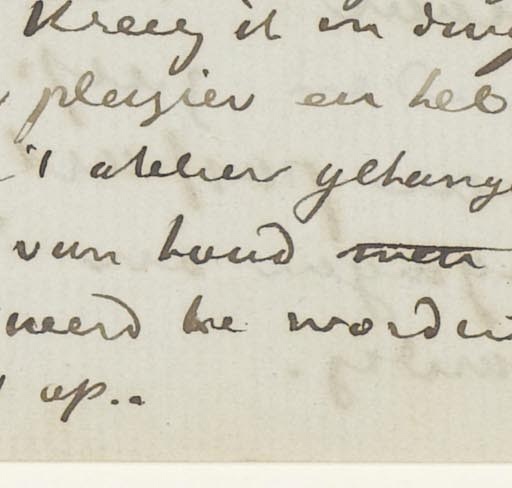 Kreeg ik en
plezier en heb
't atelier gehang
van houd men
neerd te worden
op..